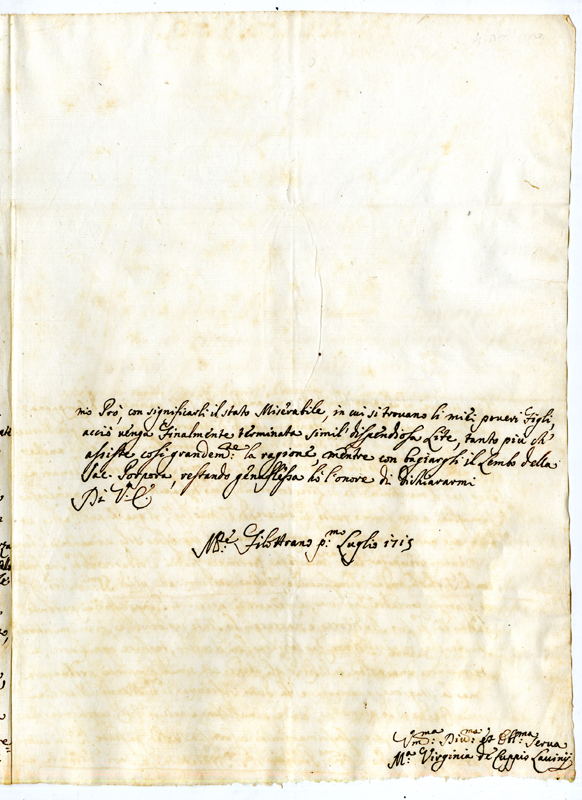 mio Prò, con significarli il stato Miserabile, in cui si trovano li miei poveri Figli,
acciò venga Finalmente terminata simil dispendiosa Lite, tanto più ch'
assiste così grandem:te la ragione, mentre con baciargli il Lembo della
Sac. Porpora, restando genuflessa hò l'onore di dichiararmi
Di V: E:
Mte Filottrano p:mo Luglio 1715
Um:ma Div:ma et Obl:ma Serva
M:a Virginia de Cuppis Lavinij